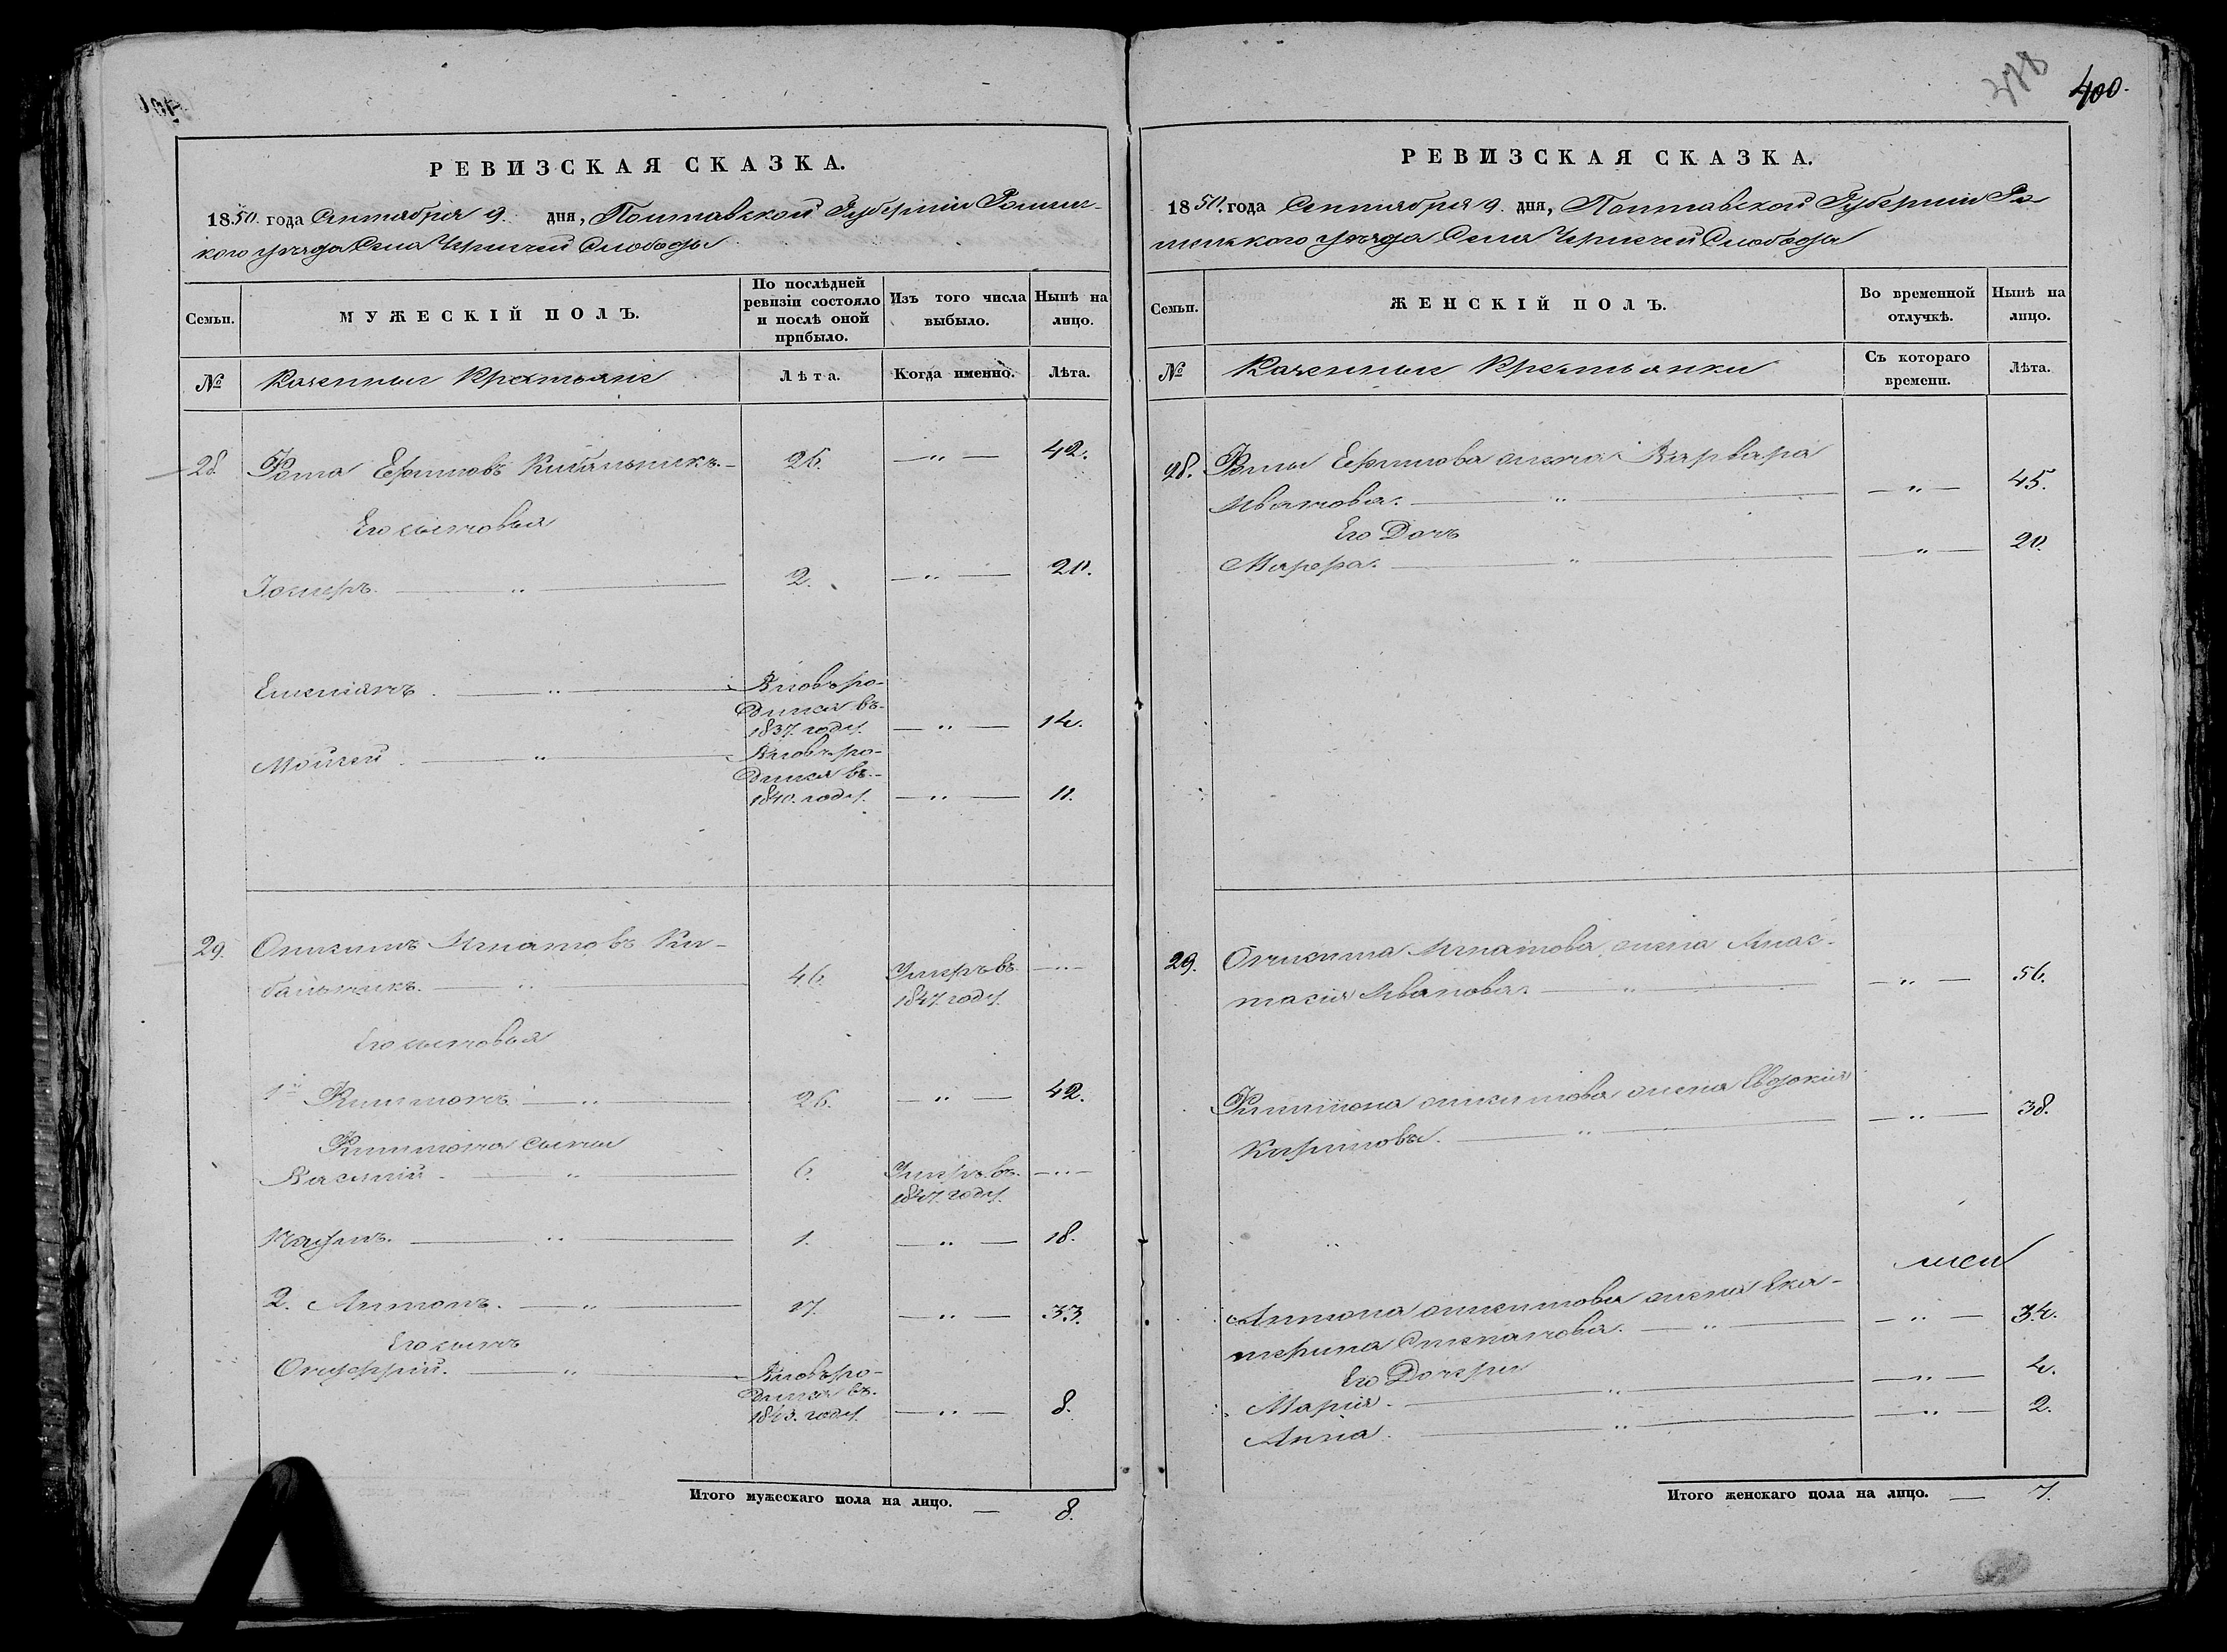 РЕВИЗСКАЯ СКАЗКА.
1850. года Сентября 9. дня, Полтавской Губерніи Роменс-
кого уезда Села Чернечей Слободы
Семьи.
МУЖЕСКІЙ ПОЛЪ.
По послѣдней ревизіи состояло и послѣ оной прибыло.
Изъ того числа выбыло.
Нынѣ на лицо.
№
Казенные Крестьяне
Лѣта.
Когда именно.
Лѣта.
28. Фома Ефимовъ 26. —„— 42.
Его сыновья
2. —„— 20.
Емеліянъ. —„— Вновь ро-
дился въ
1837. году. —„— 14.
Мойсей. —„— Вновь ро-
дился въ
1840. году. —„— 11.
29. Онисимъ Игнатовъ Ки-
46. Умеръ въ —„—
1847. году.
Его сыновья
1й Филимонъ —„— 26. —„— 42.
Филимона сыны
Василій. —„— 6. Умеръ въ —„—
1847. году.
Наумъ. —„— 1. —„— 18.
2. Антонъ. —„— 17. —„— 33.
Его сынъ
Онуфрій. —„— Вновь ро-
дился въ
1843. году. —„— 8.
Итого мужескаго пола на лицо. — 8.
400.
РЕВИЗСКАЯ СКАЗКА.
1850. года Сентября 9. дня, Полтавской Губерніи Ро-
менского уезда Села Чернечей Слободы
Семьи.
ЖЕНСКІЙ ПОЛЪ.
Во временной отлучкѣ.
Нынѣ на лицо.
№
Казенные Крестьянки
Съ котораго времени.
Лѣта.
28. Фомы Ефимова жена Варвара
Иванова. —„— —„— 45.
Его Дочь
Марфа. —„— —„— 20.
29. Онисима Игнатова жена Анас-
тасія Иванова. —„— —„— 56.
Филимона онисимова жена Евдокія
Кирилова. —„— —„— 38.
Антона онисимова жена Ека-
терина Степанова. —„— —„— 34.
Его Дочери
Марія. —„— —„— 4.
Анна. —„— —„— 2.
Итого женскаго пола на лицо. — 7.